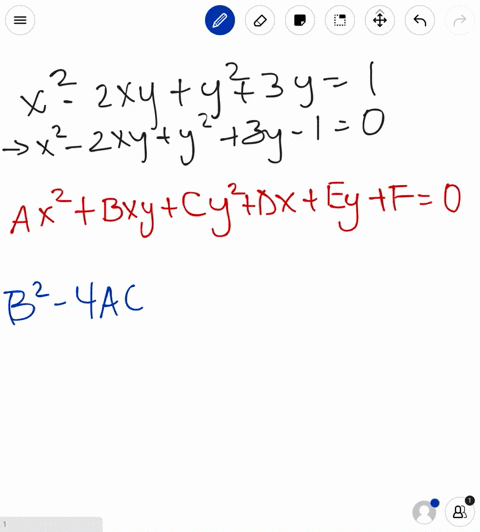 x² - 2xy + y² + 3y = 1
→ x² - 2xy + y² + 3y - 1 = 0
Ax² + Bxy + Cy² + Dx + Ey + F = 0
B² - 4AC
1
1